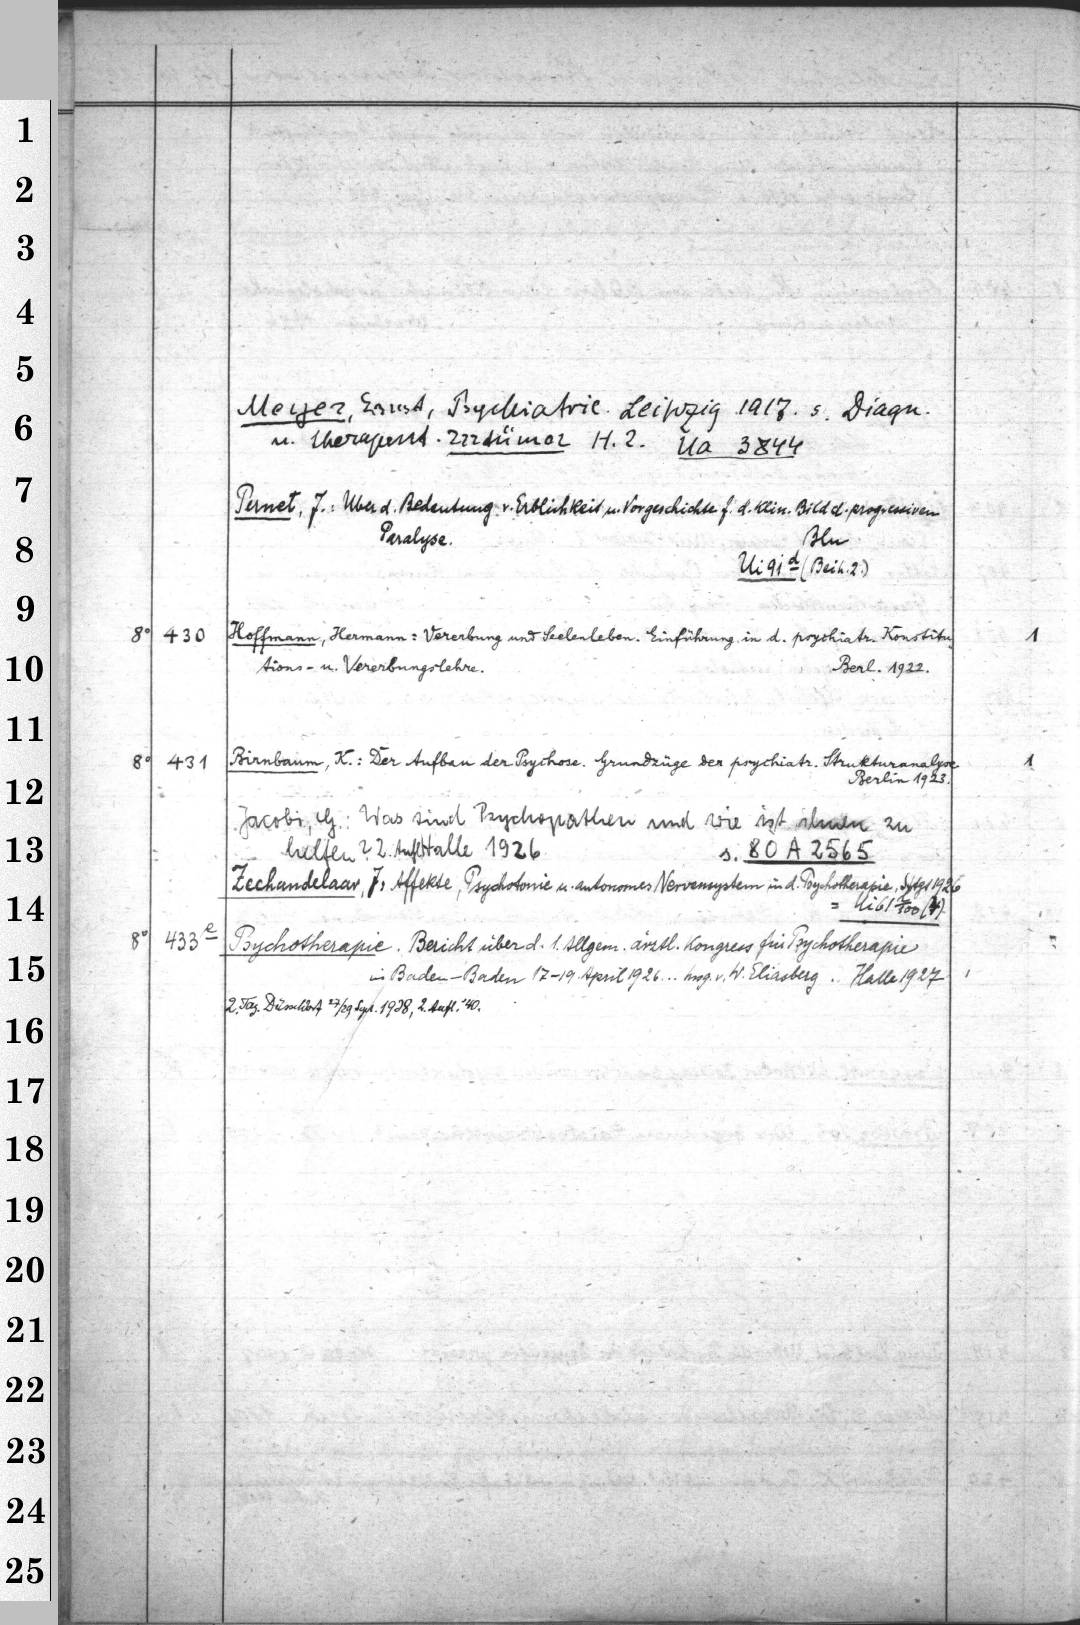 1
2
3
4
5
6
7
8
9
10
11
12
13
14
15
16
17
18
19
20
21
22
23
24
25
Meyer, Ernst, Psychiatrie. Leipzig 1917. s. Diagn.
u. therapeut. H. 2. Ua 3844
Pernet, J.: Über d. Bedeutung v. Erblichkeit u. Vorgeschichte f. d. klin. Bild d. progressiven
Paralyse. Bln
Ui 91 d (Beih. 2.)
8° 430 Hoffmann, Hermann: Vererbung und Seelenleben. Einführung in d. psychiatr. Konstitu- 1
tions- u. Vererbungslehre. Berl. 1922.
8° 431 Birnbaum, K.: Der Aufbau der Psychose. Grundzüge der psychiatr. Strukturanalyse 1
Berlin 1923.
Jacobi, : Was sind Psychopathen und wie ist ihnen zu
helfen? 2. Aufl. Halle 1926 s. 80 A 2565
Zechandelaar, J. Affekte, Psychotonie u. autonomes Nervensystem in d. Psychotherapie, 1926
= Ui 61
8° 433 e Psychotherapie. Bericht über d. 1. Allgem. ärztl. Kongress für Psychotherapie
in Baden-Baden 17-19. April 1926... hrsg. v. W. Eliasberg .. Halle 1927
2. Tag. Düsseldorf 27/29 Sept. 1938, 2. Aufl. '40.